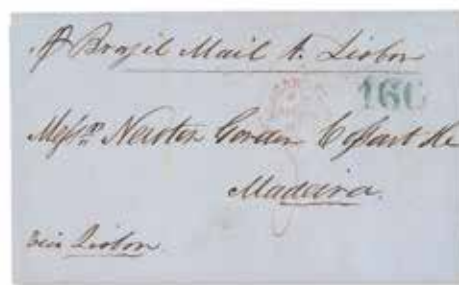 p Brazil Mail St. Lisbon
160
Messrs. Newton Gordon Cossart &c
Madeira.
via Lisbon